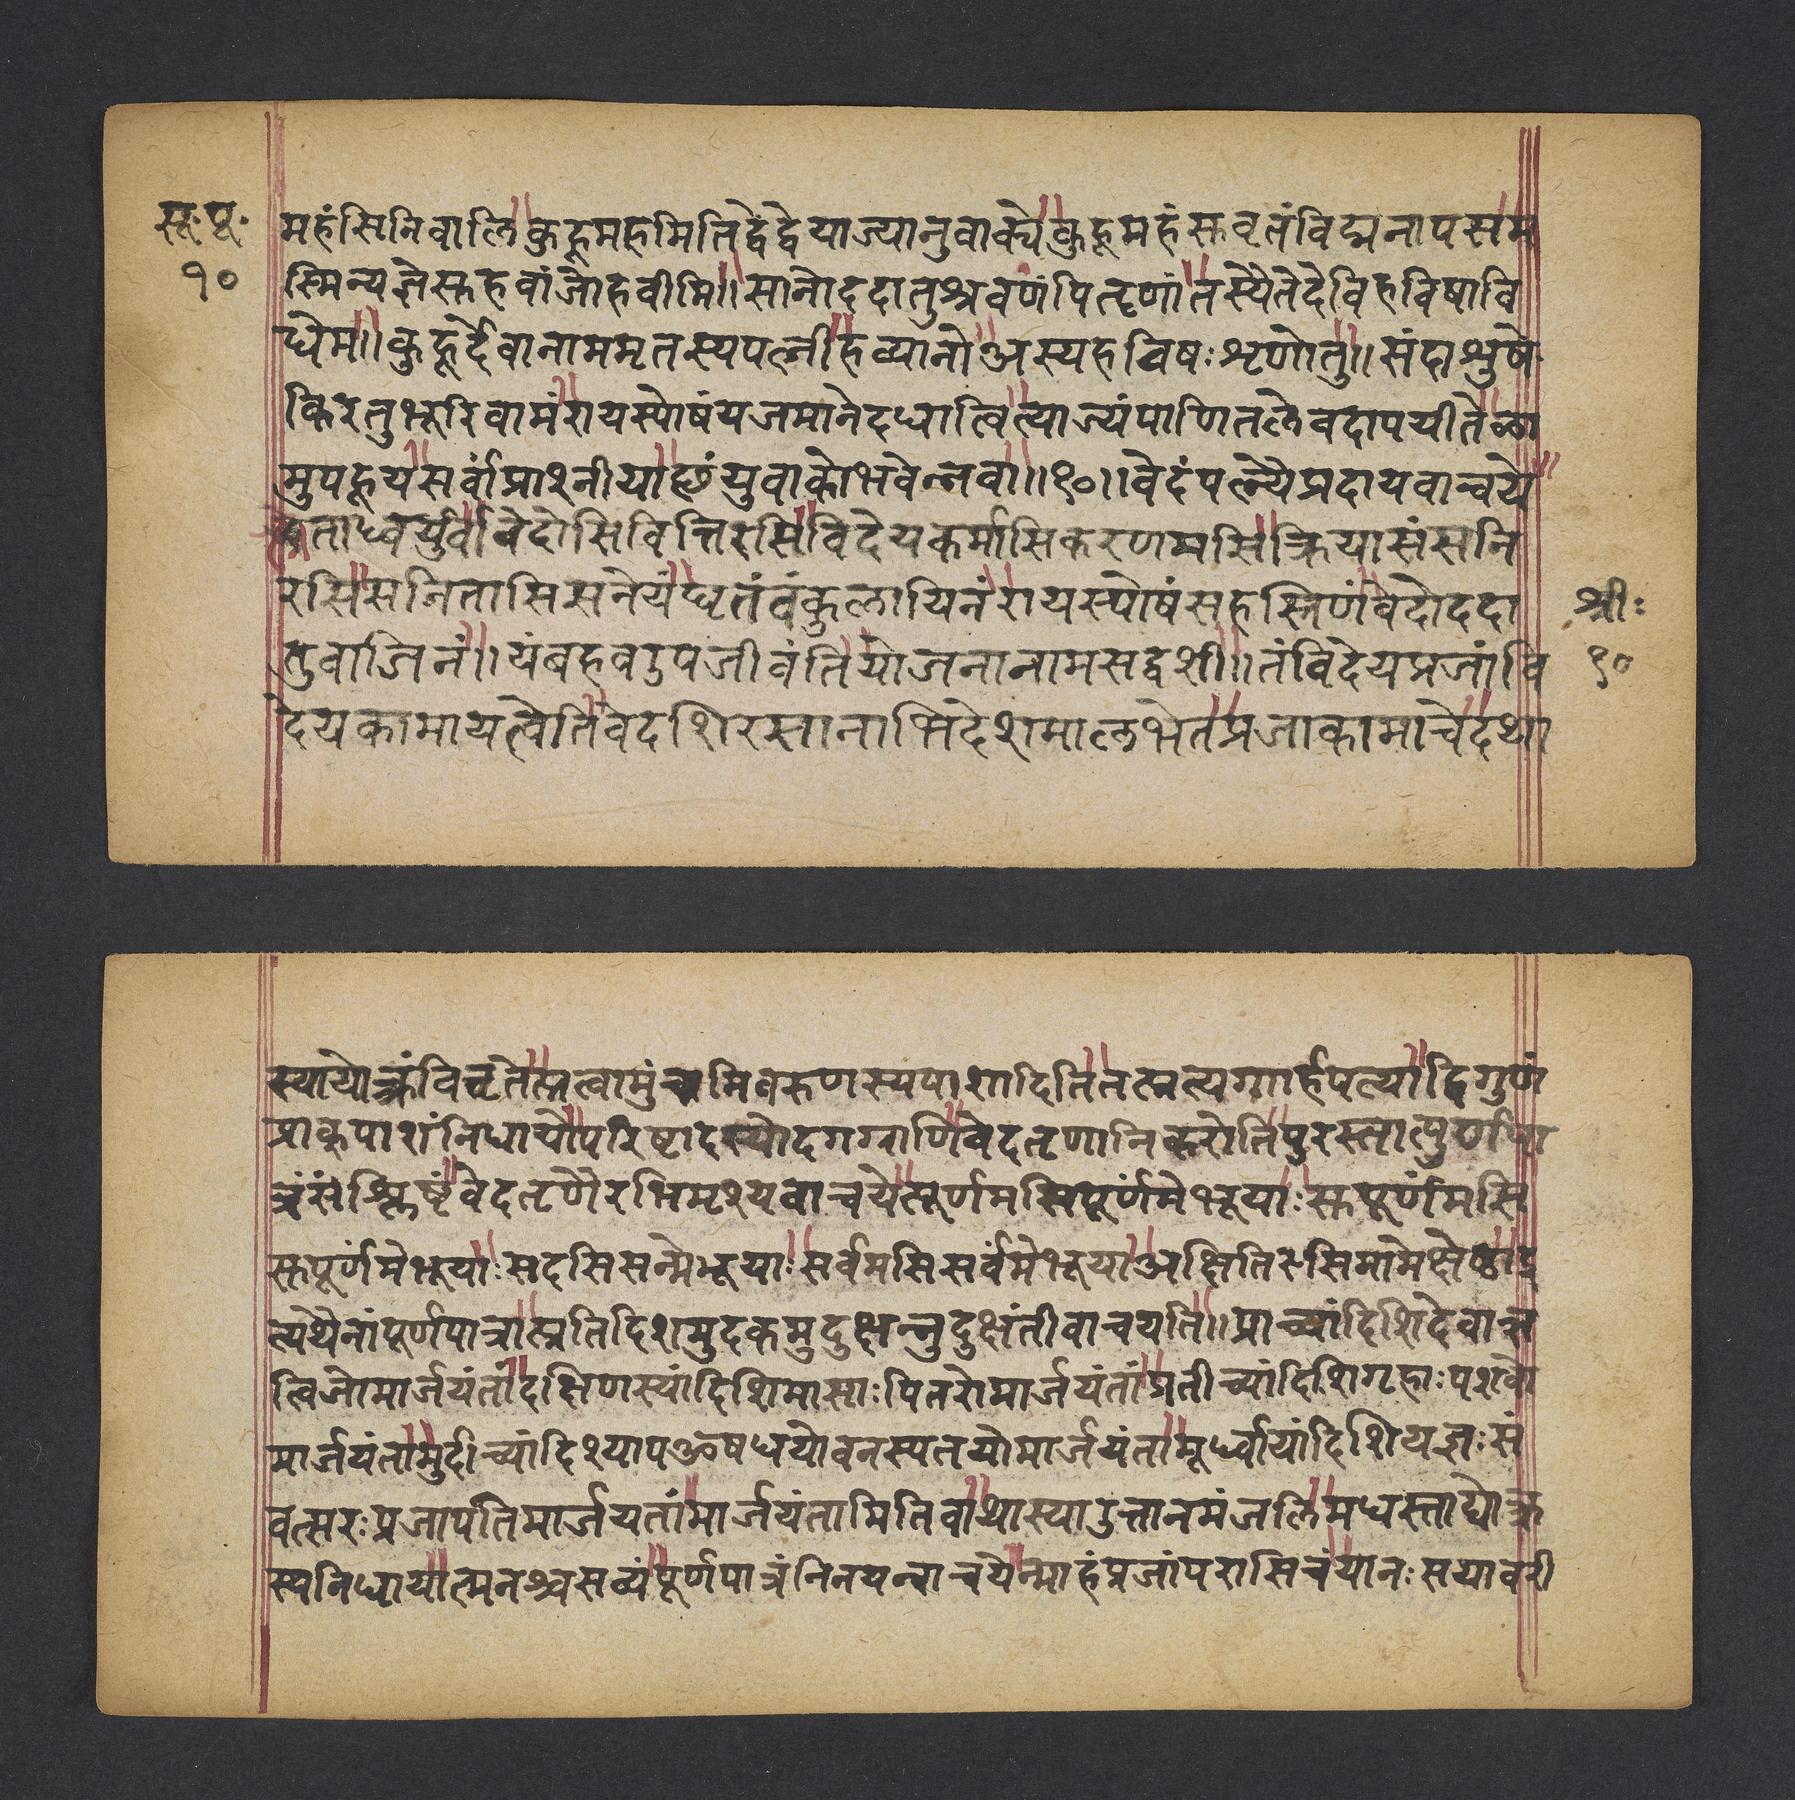 सू॰ पू॰
१०
महंसिनिवालिकुहूमहमितिद्वेद्वेयाज्यानुवाक्येकुहूमहंसुवृतंविद्मनापसम
स्मिन्यज्ञेसुहवांजोहवीमि॥सानोददातुश्रवणंपितॄणांतस्यैतेदेविहविषावि
धेम॥कुहूर्देवानाममृतस्यपत्नीहव्यानोअस्यहविषःशृणोतु॥संदाशुषे
किरतुभूरिवामंरायस्पोषंयजमानेदधात्वित्याज्यंपाणितलेवदापयीतेळा
मुपहूयसर्वांप्राश्नीयाछंयुवाकोभवेन्नवा॥१०॥वेदंपत्न्यैप्रदायवाचये
द्धोताध्वर्युर्वावेदोसिवित्तिरसिविदेयकर्मासिकरणमसिक्रियासंसनि
रसिसनितासिसनेयंघृतवंतंकुलायिनंरायस्पोषंसहस्रिणंवेदोददा
तुवाजिनं॥यंबहवउपजीवंतियोजनानामसद्वशी॥तंविदेयप्रजांवि
देयकामायत्वेतिवेदशिरसानाभिदेशमालभेतप्रजाकामाचेदथा
श्रीः
१०
स्यायोक्त्रंविचृतेत्प्रत्वामुंचामिवरुणस्यपाशादितितत्प्रत्यग्गार्हपत्याद्द्विगुणं
प्राक्पाशंनिधायोपरिष्टादस्योदगग्राणिवेदतृणानिकरोतिपुरस्तात्पूर्णपा
त्रंसंश्लिष्टंवेदतृणैरभिमृश्यवाचयेत्पूर्णमसिपूर्णंमेभूयाःसुपूर्णमसि
सुपूर्णंमेभूयाःसदसिसन्मेभूयाःसर्वमसिसर्वंमेभूयाअक्षितिरसिमामेक्षेष्ठाइ
त्यथैनांपूर्णपात्रात्प्रतिदिशमुदकमुदुक्षन्नुदुक्षंतीवाचयति॥प्राच्यांदिशिदेवाऋ
त्विजोमार्जयंतांदक्षिणस्यांदिशिमासाःपितरोमार्जयंतांप्रतीच्यांदिशिगृहाःपशवो
मार्जयंतामुदीच्यांदिश्यापओषधयोवनस्पतयोमार्जयंतामूर्ध्वायांदिशियज्ञःसं
वत्सरःप्रजापतिमार्जयतांमार्जयंतामितिवाथास्याउत्तानमंजलिमधस्ताद्योक्त्र
स्यनिधायात्मनश्चसव्यंपूर्णपात्रंनिनयन्वाचयेन्माहंप्रजांपरासिचंयानःसयावरी